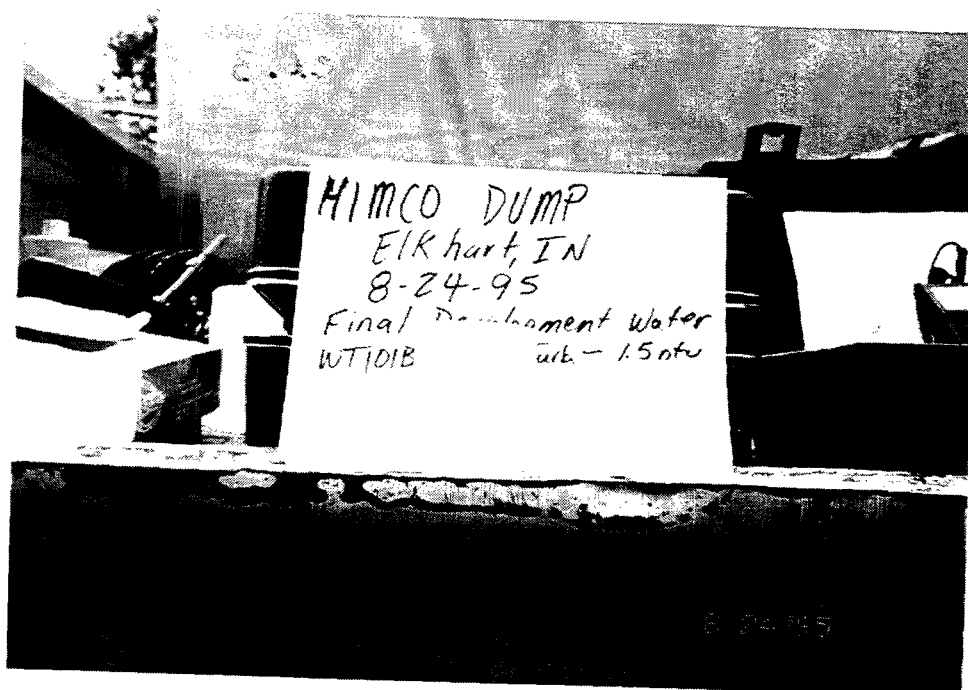 HIMCO DUMP
Elkhart, IN
8-24-95
Final Development Water
WT101B urb - 1.5 ntu
8 24 '95